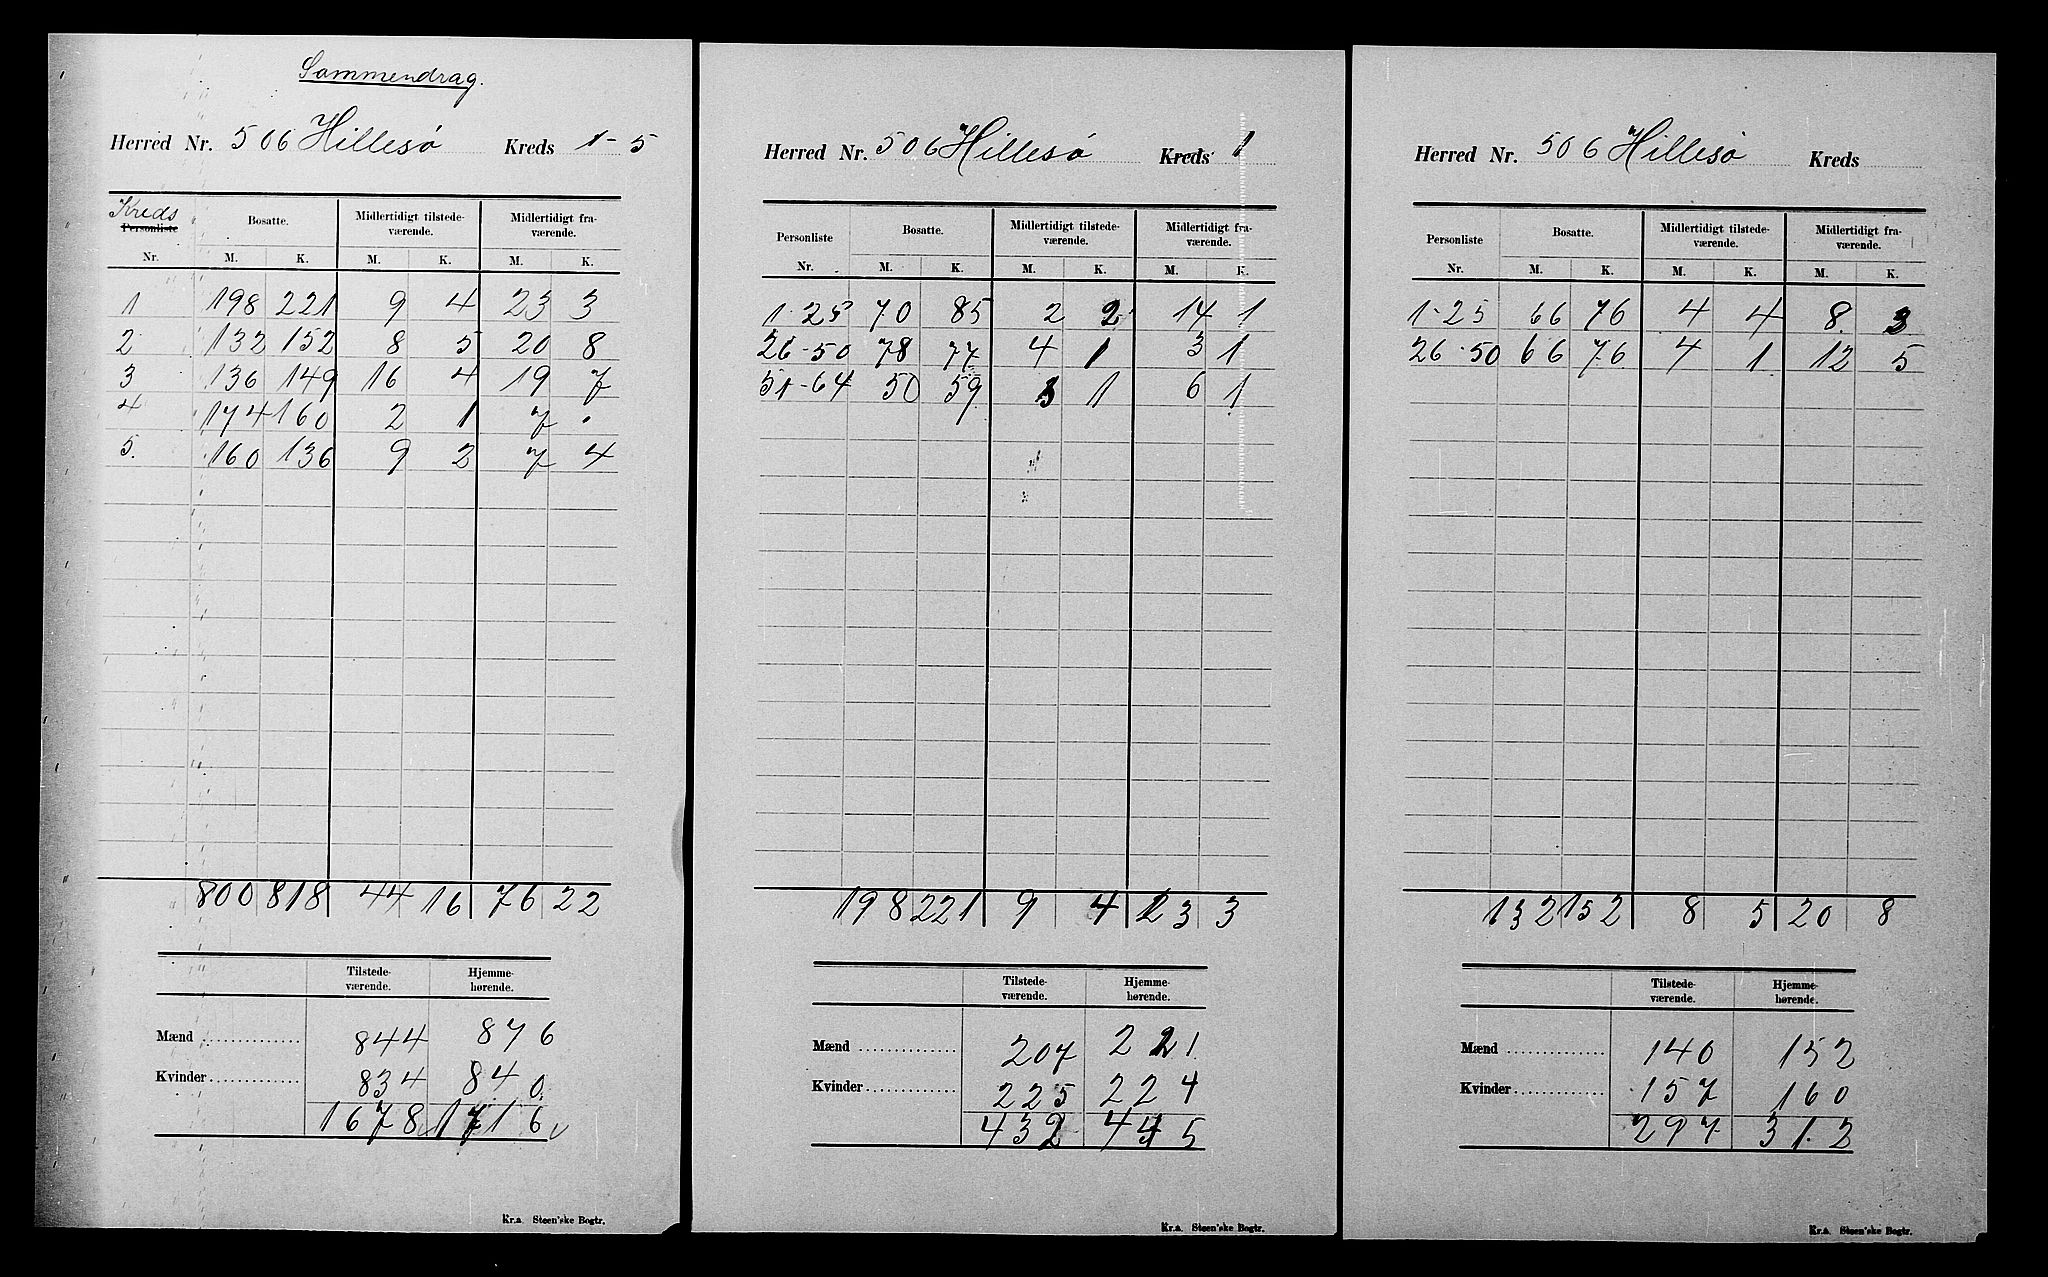 Sammendrag.
Herred Nr. 506 Hillesø Kreds 1-5
Kreds
Personliste Bosatte. Midlertidigt tilstede- Midlertidigt fra-
værende. værende.
Nr. M. K. M. K. M. K.
1 198 221 9 4 23 3
2 132 152 8 5 20 8
3 136 149 16 4 19 7
4 174 160 2 1 7 .
5. 160 136 9 2 7 4
800 818 44 16 76 22
Tilstede- Hjemme-
værende. hørende.
Mænd 844 876
Kvinder 834 840
1678 1716
Kr.a. Steen'ske Bogtr.
Herred Nr. 506 Hillesø Kreds 1
Personliste Bosatte. Midlertidigt tilstede- Midlertidigt fra-
værende. værende.
Nr. M. K. M. K. M. K.
1-25 70 85 2 2 14 1
26-50 78 77 4 1 3 1
51-64 50 59 3 1 6 1
198 221 9 4 23 3
Tilstede- Hjemme-
værende. hørende.
Mænd 207 221
Kvinder 225 224
432 445
Kr.a. Steen'ske Bogtr.
Herred Nr. 506 Hillesø Kreds
Personliste Bosatte. Midlertidigt tilstede- Midlertidigt fra-
værende. værende.
Nr. M. K. M. K. M. K.
1-25 66 76 4 4 8 3
26-50 66 76 4 1 12 5
132 152 8 5 20 8
Tilstede- Hjemme-
værende. hørende.
Mænd 140 152
Kvinder 157 160
297 312
Kr.a. Steen'ske Bogtr.